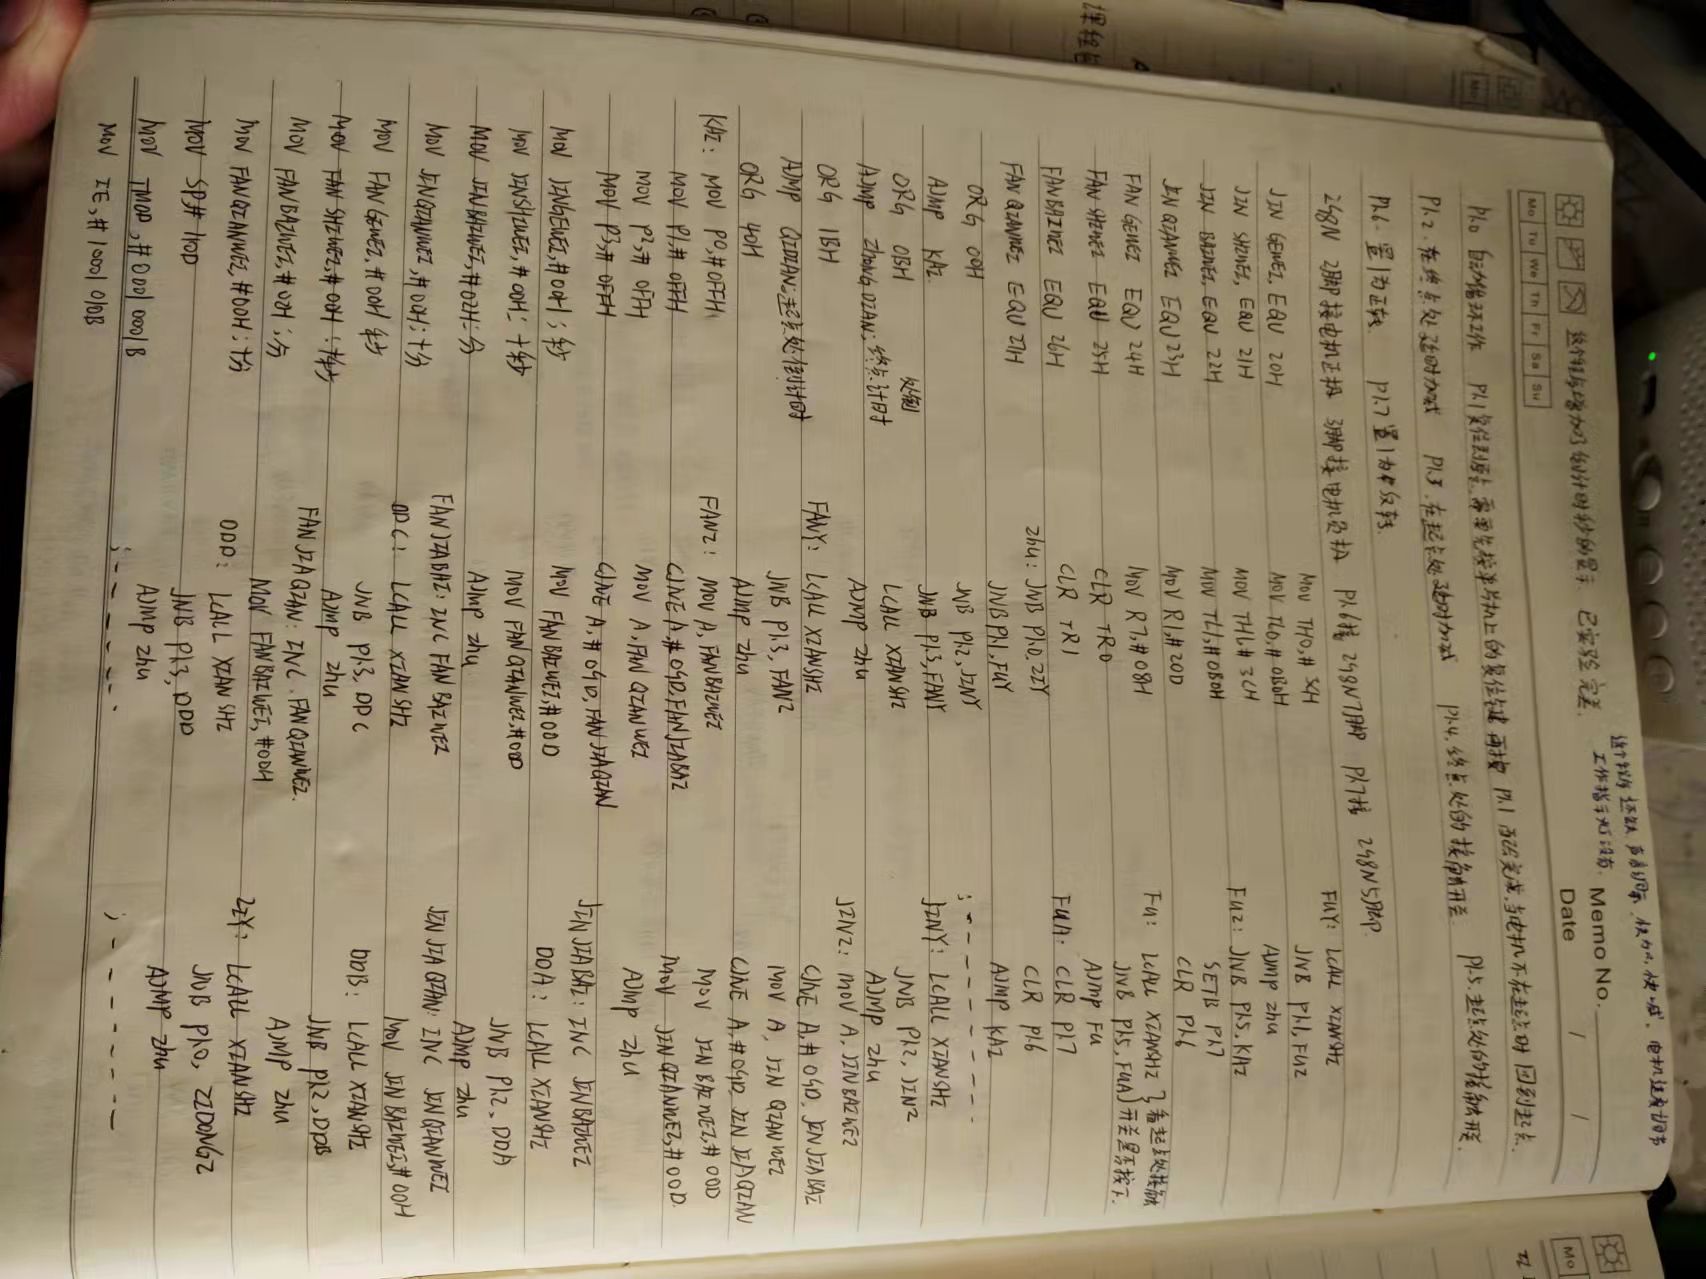 Memo No.
Date / /
Mo Tu We Th Fr Sa Su
这个程序增加了倒计时秒的显示 已实验完毕
工作指示灯没有
P1.0 自动循环工作
P1.2. 在终点处延时加减 P1.3 在起点处延时加减 P1.4. 终点处的接触开关 P1.5 起点处的接触开关
P1.6. 置1为正转 P1.7 置1为反转
298N 2脚接电机正极 3脚接电机负极 P1.6接 298N7脚 P1.7接 298N5脚
JIN GEWEI, EQU 20H
JIN SHIWEI, EQU 21H
JIN BAIWEI, EQU 22H
JIN QIANWEI EQU 23H
FAN GEWEI EQU 24H
FAN SHIWEI EQU 25H
FAN BAIWEI EQU 26H
FAN QIANWEI EQU 27H
ORG 00H
AJMP KAI
ORG 0BH
AJMP ZhongDIAN; 终点计时
ORG 1BH
AJMP QIDIAN; 起点处倒计时
ORG 40H
KAI: MOV P0,#0FFH
MOV P1,#0FFH
MOV P2,#0FFH
MOV P3,#0FFH
MOV JINGEWEI,#00H; 秒
MOV JINSHIWEI,#00H; 十秒
MOV JINBAIWEI,#02H; 分
MOV JINQIANWEI,#00H; 十分
MOV FANGEWEI,#00H 秒
MOV FANSHIWEI,#00H; 十秒
MOV FANBAIWEI,#02H; 分
MOV FANQIANWEI,#00H; 十分
MOV SP,#70D
MOV TMOD,#00010001B
MOV IE,#10001010B
MOV TH0,#3CH
MOV TL0,#0B0H
MOV TH1,#3CH
MOV TL1,#0B0H
MOV R1,#20D
MOV R7,#08H
CLR TR0
CLR TR1
Zhu: JNB P1.0,ZZY
JNB P1.1,FUY
JNB P1.2,JINY
JNB P1.3,FANY
LCALL XIANSHI
AJMP Zhu
FANY: LCALL XIANSHI
JNB P1.3,FANZ
AJMP Zhu
FANZ: MOV A,FANBAIWEI
CJNE A,#09D,FANJIABAI
MOV A,FANQIANWEI
CJNE A,#09D,FANJIAQIAN
MOV FANBAIWEI,#00D
MOV FANQIANWEI,#00D
AJMP Zhu
FANJIABAI: INC FANBAIWEI
DDC: LCALL XIANSHI
JNB P1.3,DDC
AJMP Zhu
FANJIAQIAN: INC FANQIANWEI
MOV FANBAIWEI,#00H
DDD: LCALL XIANSHI
JNB P1.3,DDD
AJMP Zhu
; - - - - - - -
FUY: LCALL XIANSHI
JNB P1.1,FUZ
AJMP Zhu
FUZ: JNB P1.5,KAI
SETB P1.7
CLR P1.6
FU: LCALL XIANSHI
JNB P1.5,FUA
AJMP FU
FUA: CLR P1.7
CLR P1.6
AJMP KAI
; - - - - - - - -
JINY: LCALL XIANSHI
JNB P1.2,JINZ
AJMP Zhu
JINZ: MOV A,JINBAIWEI
CJNE A,#09D,JINJIABAI
MOV A,JINQIANWEI
CJNE A,#09D,JINJIAQIAN
MOV JINBAIWEI,#00D
MOV JINQIANWEI,#00D
AJMP Zhu
JINJIABAI: INC JINBAIWEI
DDA: LCALL XIANSHI
JNB P1.2,DDA
AJMP Zhu
JINJIAQIAN: INC JINQIANWEI
MOV JINBAIWEI,#00H
DDB: LCALL XIANSHI
JNB P1.2,DDB
AJMP Zhu
ZZY: LCALL XIANSHI
JNB P1.0,ZIDONGZ
AJMP Zhu
; - - - - - - -